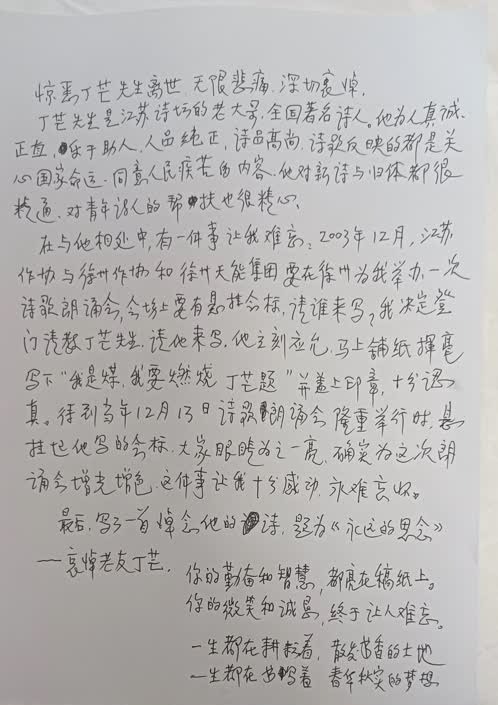 惊悉丁芒先生离世,无限悲痛,深切哀悼,
丁芒先生是江苏诗坛的老大哥,全国著名诗人。他为人真诚、
正直,乐于助人,人品纯正,诗品高尚,诗歌反映的都是关
心国家命运、同意人民疾苦的内容,他对新诗与旧体都很
精通,对青年诗人的帮扶也很精心。
在与他相处中,有一件事让我难忘:2003年12月,江苏
作协与徐州作协和徐州天能集团要在徐州为我举办一次
诗歌朗诵会,会场上要有悬挂会标,请谁来写?我决定登
门请教丁芒先生,请他来写,他立刻应允,马上铺纸挥毫
写下"我是煤,我要燃烧 丁芒题"并盖上印章,十分认
真。待到当年12月13日诗歌朗诵会隆重举行时,悬
挂起他写的会标,大家眼睛为之一亮,确实为这次朗
诵会增光增色,这件事让我十分感动,永难忘怀。
最后,写了一首悼念他的诗,题为《永远的思念》
——哀悼老友丁芒。
你的勤奋和智慧,都亮在稿纸上。
你的微笑和诚恳,终于让人难忘。
一生都在耕耘着,散发芳香的土地
一生都在 着 春华秋实的梦想